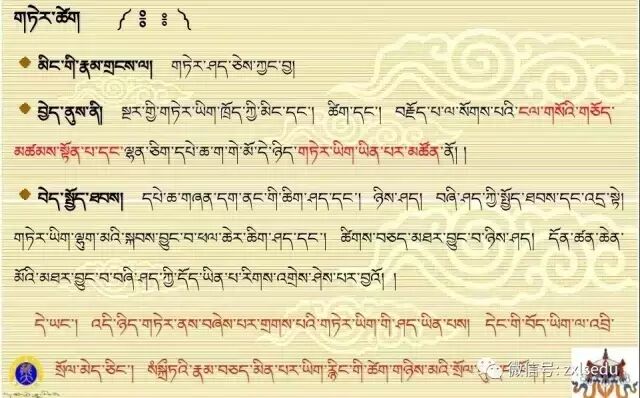 གཏེར་ཚེག ༼ ༔ ༔ ༽
མིང་གི་རྣམ་གྲངས་ལ། གཏེར་ཤད་ཅེས་ཀྱང་བྱ།
བྱེད་ནུས་ནི། སྔར་གྱི་གཏེར་ཡིག་ཁྲོད་ཀྱི་མིང་དང་། ཚིག་དང་། བརྗོད་པ་ལ་སོགས་པའི་ངལ་གསོའི་གཅོད་
མཚམས་སྟོན་པ་དང་ལྷན་ཅིག་དཔེ་ཆ་ག་གེ་མོ་དེ་ཉིད་གཏེར་ཡིག་ཡིན་པར་མཚོན་ནོ། །
བེད་སྤྱོད་ཐབས། དཔེ་ཆ་གཞན་དག་ནང་གི་ཆིག་ཤད་དང་། ཉིས་ཤད། བཞི་ཤད་ཀྱི་སྤྱོད་ཐབས་དང་འདྲ་སྟེ།
གཏེར་ཡིག་ལྷུག་མའི་སྐབས་བྱུང་བ་ཕལ་ཆེར་ཆིག་ཤད་དང་། ཚིགས་བཅད་མཐར་བྱུང་བ་ཉིས་ཤད། དོན་ཚན་ཆེན་
མོའི་མཐར་བྱུང་བ་བཞི་ཤད་ཀྱི་དོད་ཡིན་པ་རིགས་འགྲེས་ཤེས་པར་བྱའོ། །
དེ་ཡང་། འདི་ཉིད་གཏེར་ནས་བཞེས་པར་གྲགས་པའི་གཏེར་ཡིག་གི་ཤད་ཡིན་པས། དེང་གི་བོད་ཡིག་ལ་འབྲི་
སྲོལ་མེད་ཅིང་། སཾསྐྲྀཏའི་རྣམ་བཅད་མིན་པར་ཡིག་རྙིང་གི་ཚེག་གཉིས་མའི་སྲོལ་
微信号: zxlsedu